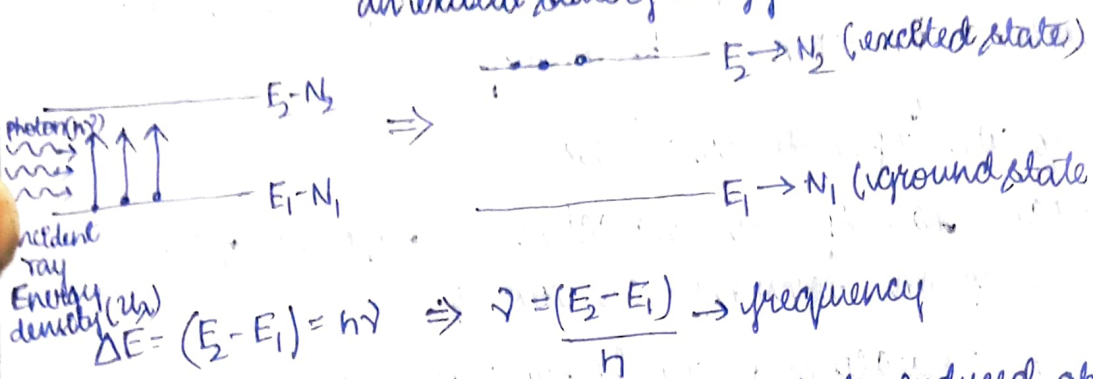 an excited
E₂→N₂ (excited state)
E₂-N₂
photon(hν)
⇒
E₁-N₁
E₁→N₁ (ground state
ncident
ray
Energy
density(uν)
ΔE = (E₂-E₁) = hν ⇒ ν = (E₂-E₁)/h → frequency